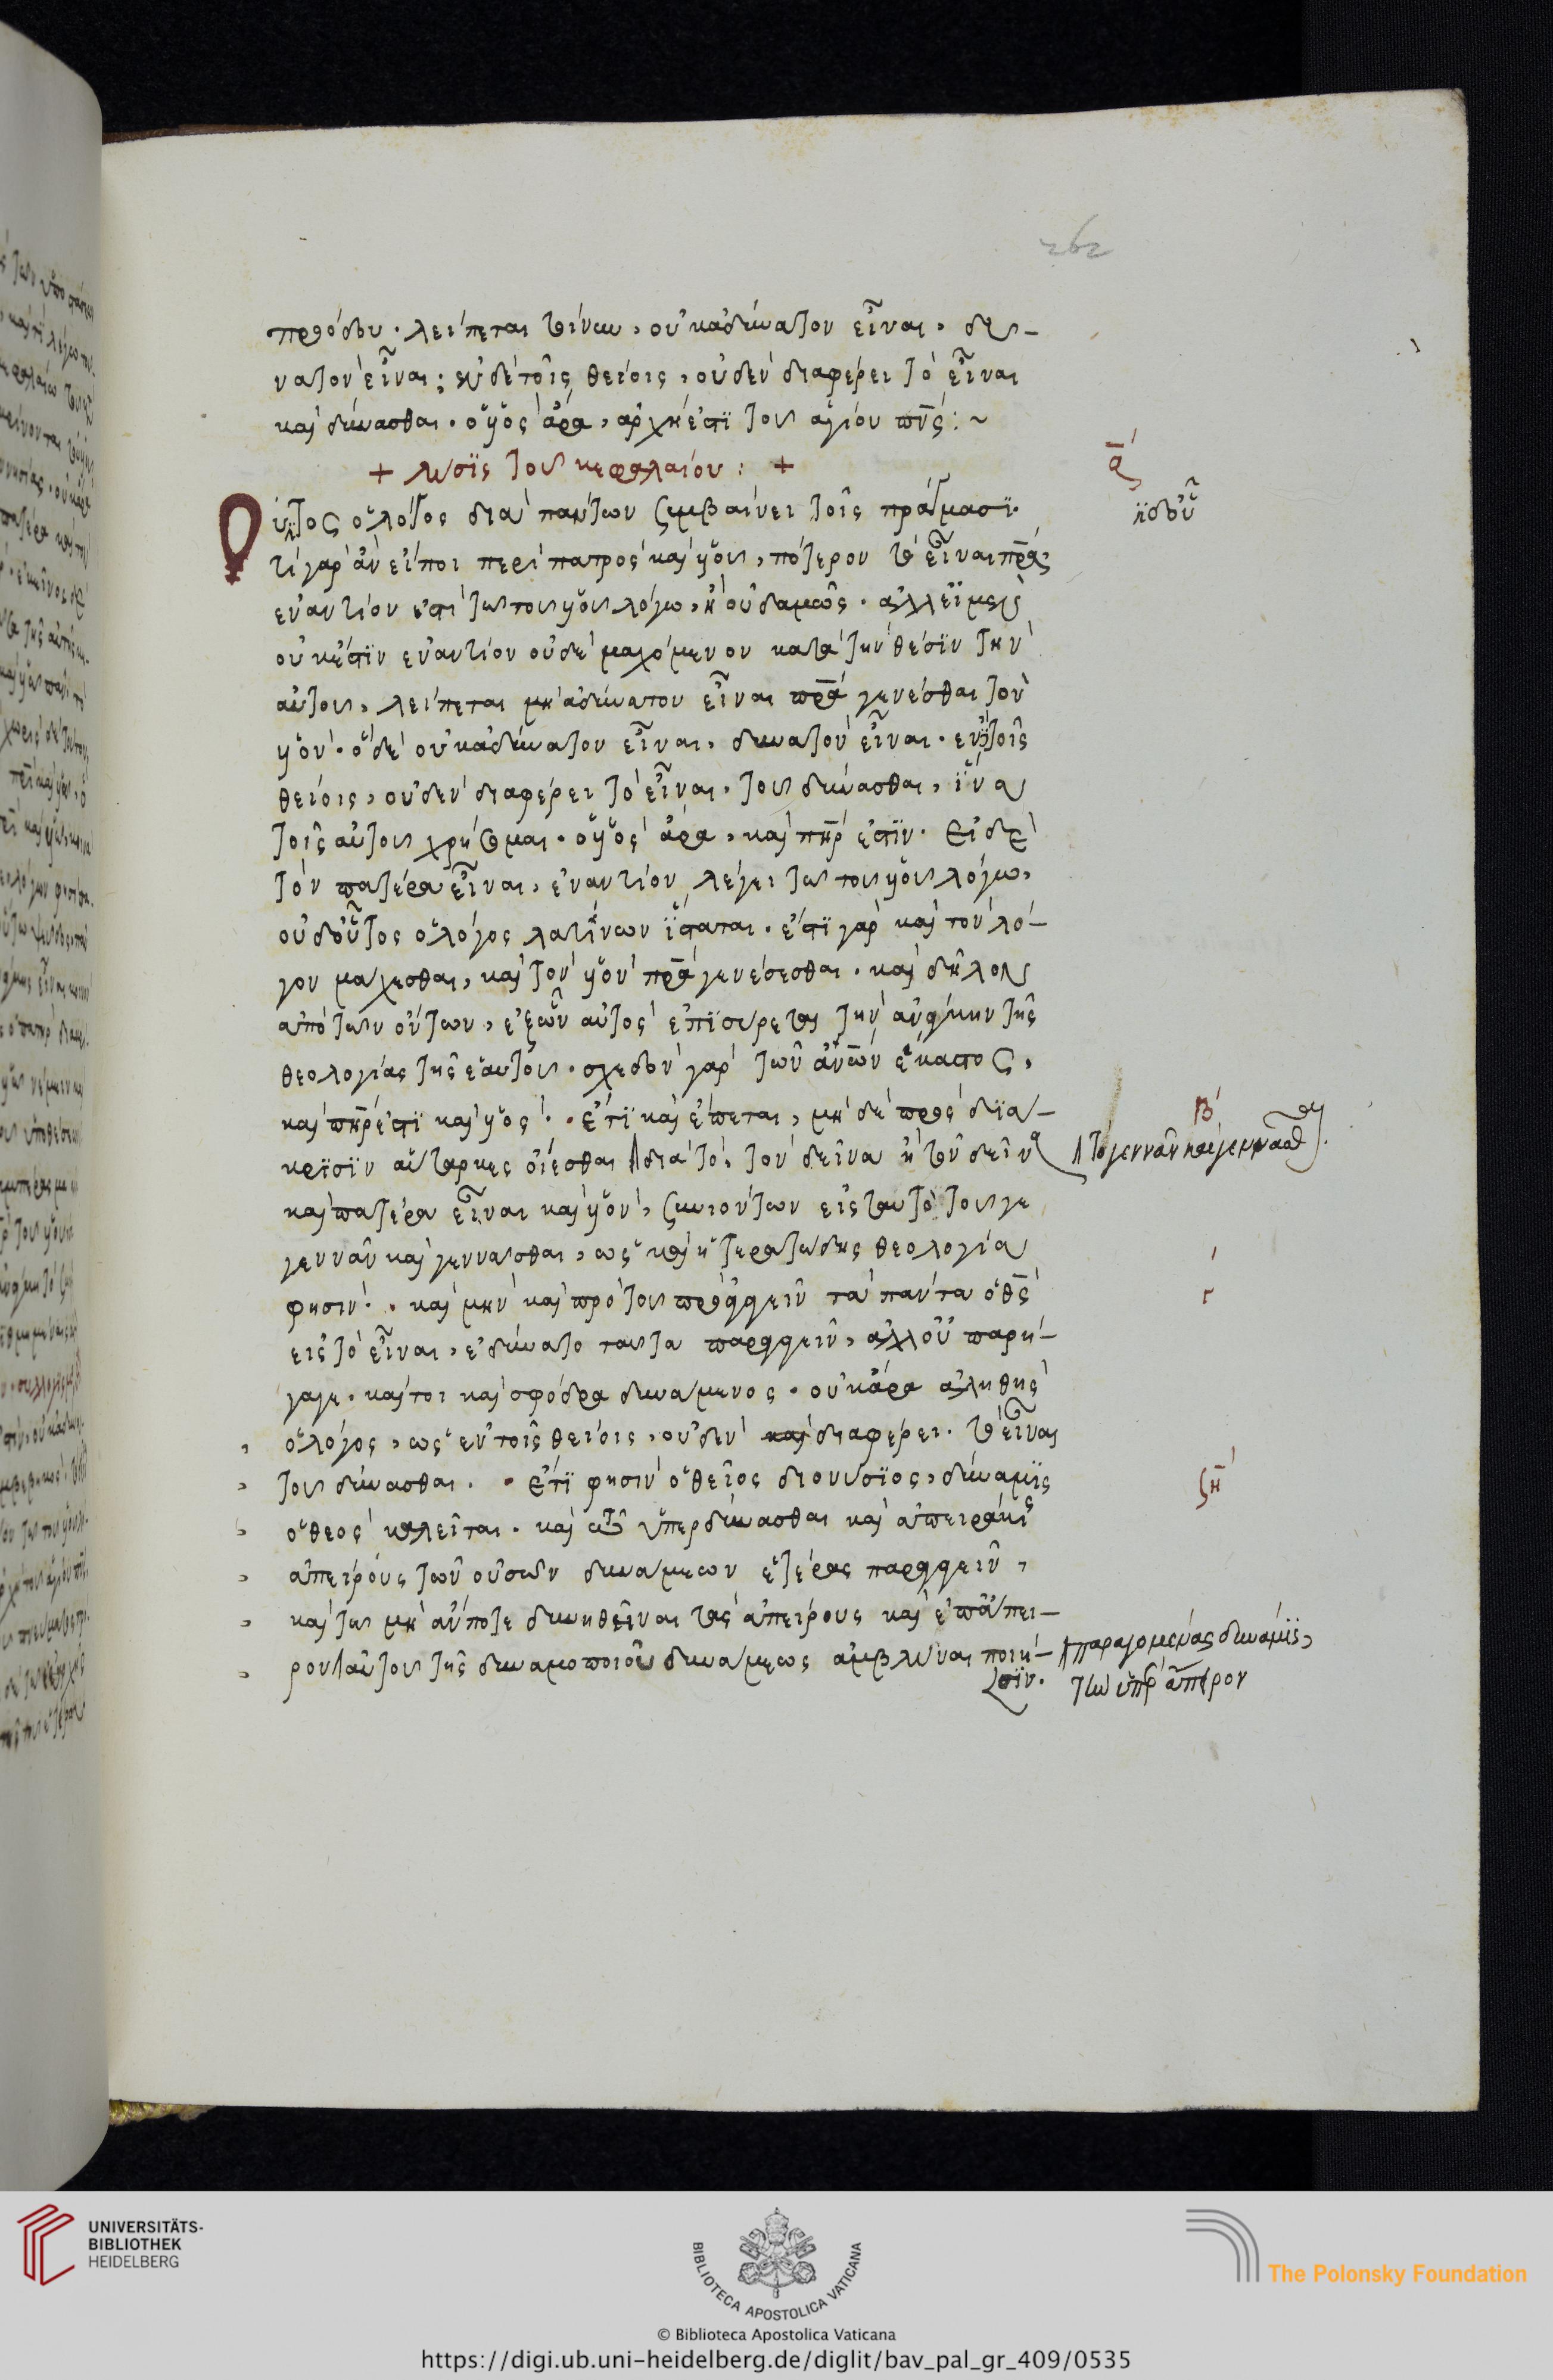 262
προόδου. λείπεται τοίνυν, οὐκ ἀδύνατον εἶναι, δυ-
νατὸν εἶναι; ἐν δὲ τοῖς θείοις, οὐδὲν διαφέρει τὸ εἶναι
καὶ δύνασθαι. ὁ υἱὸς ἄρα, ἀρχή ἐστι τοῦ ἁγίου πνς: ~
+ λύσις τοῦ κεφαλαίου: +
ᾱ
Οὗτος ὁ λόγος διὰ πάντων συμβαίνει τοῖς πράγμασι.
τί γὰρ ἂν εἴποι περὶ πατρὸς καὶ υἱοῦ, πότερον τὸ εἶναι πρα
ἐναντίον ἐστὶ τῷ τοῦ υἱοῦ λόγῳ, ἢ οὐδαμῶς. ἀλλ' εἰ μὲν
οὐκ ἔστιν ἐναντίον οὐδὲ μαχόμενον κατὰ τὴν θέσιν τὴν
αὐτοῦ, λείπεται μὴ ἀδύνατον εἶναι πρα γενέσθαι τὸν
υἱόν. ὁ δὲ οὐκ ἀδύνατον εἶναι, δυνατὸν εἶναι. ἐν δὲ τοῖς
θείοις, οὐδὲν διαφέρει τὸ εἶναι, τοῦ δύνασθαι, ἵνα
τοῖς αὐτοῦ χρήσωμαι. ὁ υἱὸς ἄρα, καὶ πηρ ἐστιν. εἰ δὲ
τὸν πατέρα εἶναι, ἐναντίον λέγει τῷ τοῦ υἱοῦ λόγῳ,
οὐδ' οὗτος ὁ λόγος λατίνων ἵσταται. ἔστι γὰρ καὶ τὸν λό-
γον μάχεσθαι, καὶ τὸν υἱὸν πρα γενέσεσθαι. καὶ δῆλον
ἀπὸ τῶν ὄντων, ἐξ ὧν αὐτὸς ἐπισύρεται τὴν ἀνάγκην τῆς
θεολογίας τῆς ἑαυτοῦ. σχεδὸν γὰρ τῶν ἀνων ἕκαστος,
καὶ πηρ ἐστι καὶ υἱός. ἔτι καὶ ἕπεται, μηδὲ πρὸς διά-
β
κρισιν αὔταρκες οἴεσθαι διὰ τὸ, τὸν δεῖνα ἢ τὸν δεῖνα
τὸ γεννᾶν καὶ γεννᾶσθαι.
καὶ πατέρα εἶναι καὶ υἱόν, συνιόντων εἰς ταυτὸ τοῦ γε
γεννᾶν καὶ γεννᾶσθαι, ὡς καὶ ἡ τερατώδης θεολογία
φησίν. καὶ μὴν καὶ πρὸ τοῦ παράγειν τὰ πάντα ὁ θς
γ
εἰς τὸ εἶναι, ἐδύνατο ταῦτα παράγειν, ἀλλ' οὐ παρή-
γαγε. καί τοι καὶ σφόδρα δυνάμενος. οὐκ ἄρα ἀληθὴς
ὁ λόγος, ὡς ἐν τοῖς θείοις, οὐδὲν διαφέρει τὸ εἶναι
τοῦ δύνασθαι. ἔτι φησὶν ὁ θεῖος διονύσιος, δύναμις
ση
ὁ θεὸς καλεῖται. καὶ τῷ ὑπερδύνασθαι καὶ ἀπειράκις
ἀπείρους τῶν οὐσῶν δυνάμεων ἑτέρας παράγειν,
καὶ τῷ μὴ ἄν ποτε δυνηθῆναι τὰς ἀπείρους καὶ ἐπ' ἄπει-
παραγομένας δυνάμεις,
ρον αὐτοῦ τῆς δυναμοποιοῦ δυνάμεως ἀμβλῦναι ποίη-
σιν.
UNIVERSITÄTS-
BIBLIOTHEK
HEIDELBERG
BIBLIOTECA APOSTOLICA VATICANA
The Polonsky Foundation
© Biblioteca Apostolica Vaticana
https://digi.ub.uni-heidelberg.de/diglit/bav_pal_gr_409/0535